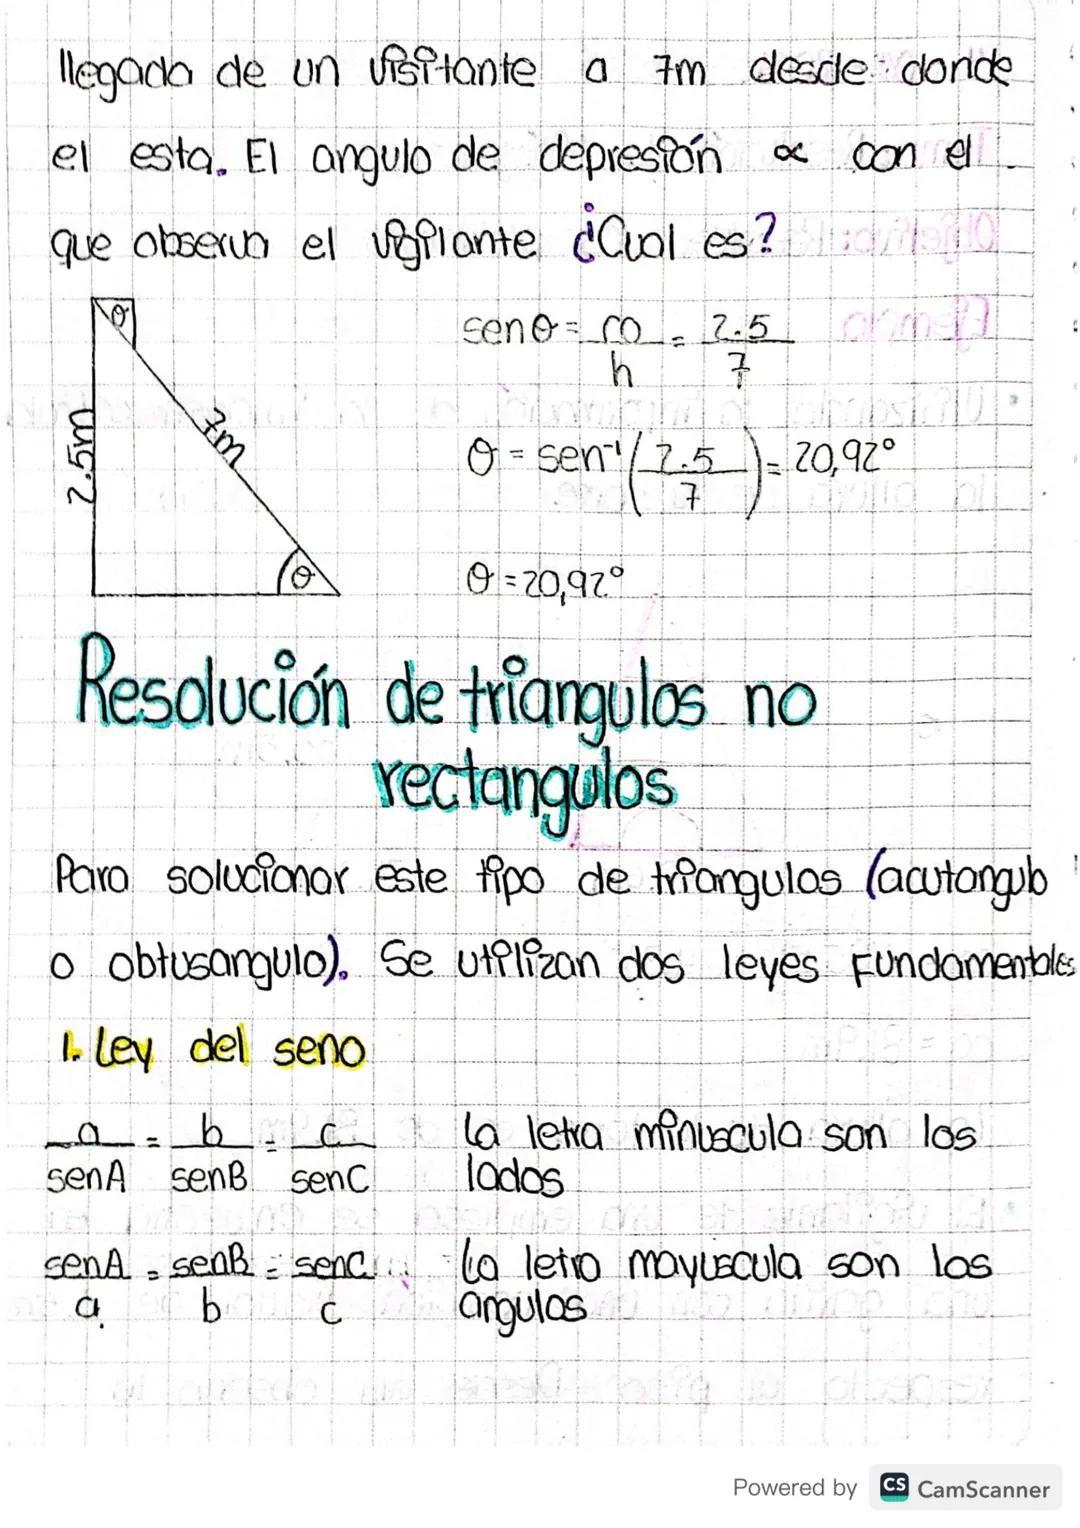 llegada de un visitante a 7m desde donde
el esta. El angulo de depresión ∝ con el
que observa el vigilante ¿Cual es?
θ
2.5m
7m
θ
senθ = co/h = 2.5/7
θ = sen⁻¹(2.5/7) = 20,92°
θ = 20,92°
Resolución de triangulos no
rectangulos
Para solucionar este tipo de triangulos (acutangulo
o obtusangulo). Se utilizan dos leyes fundamentales
1. Ley del seno
a/senA = b/senB = c/senC
La letra minuscula son los
lados
senA/a = senB/b = senC/c
La letra mayuscula son los
angulos
Powered by CS CamScanner